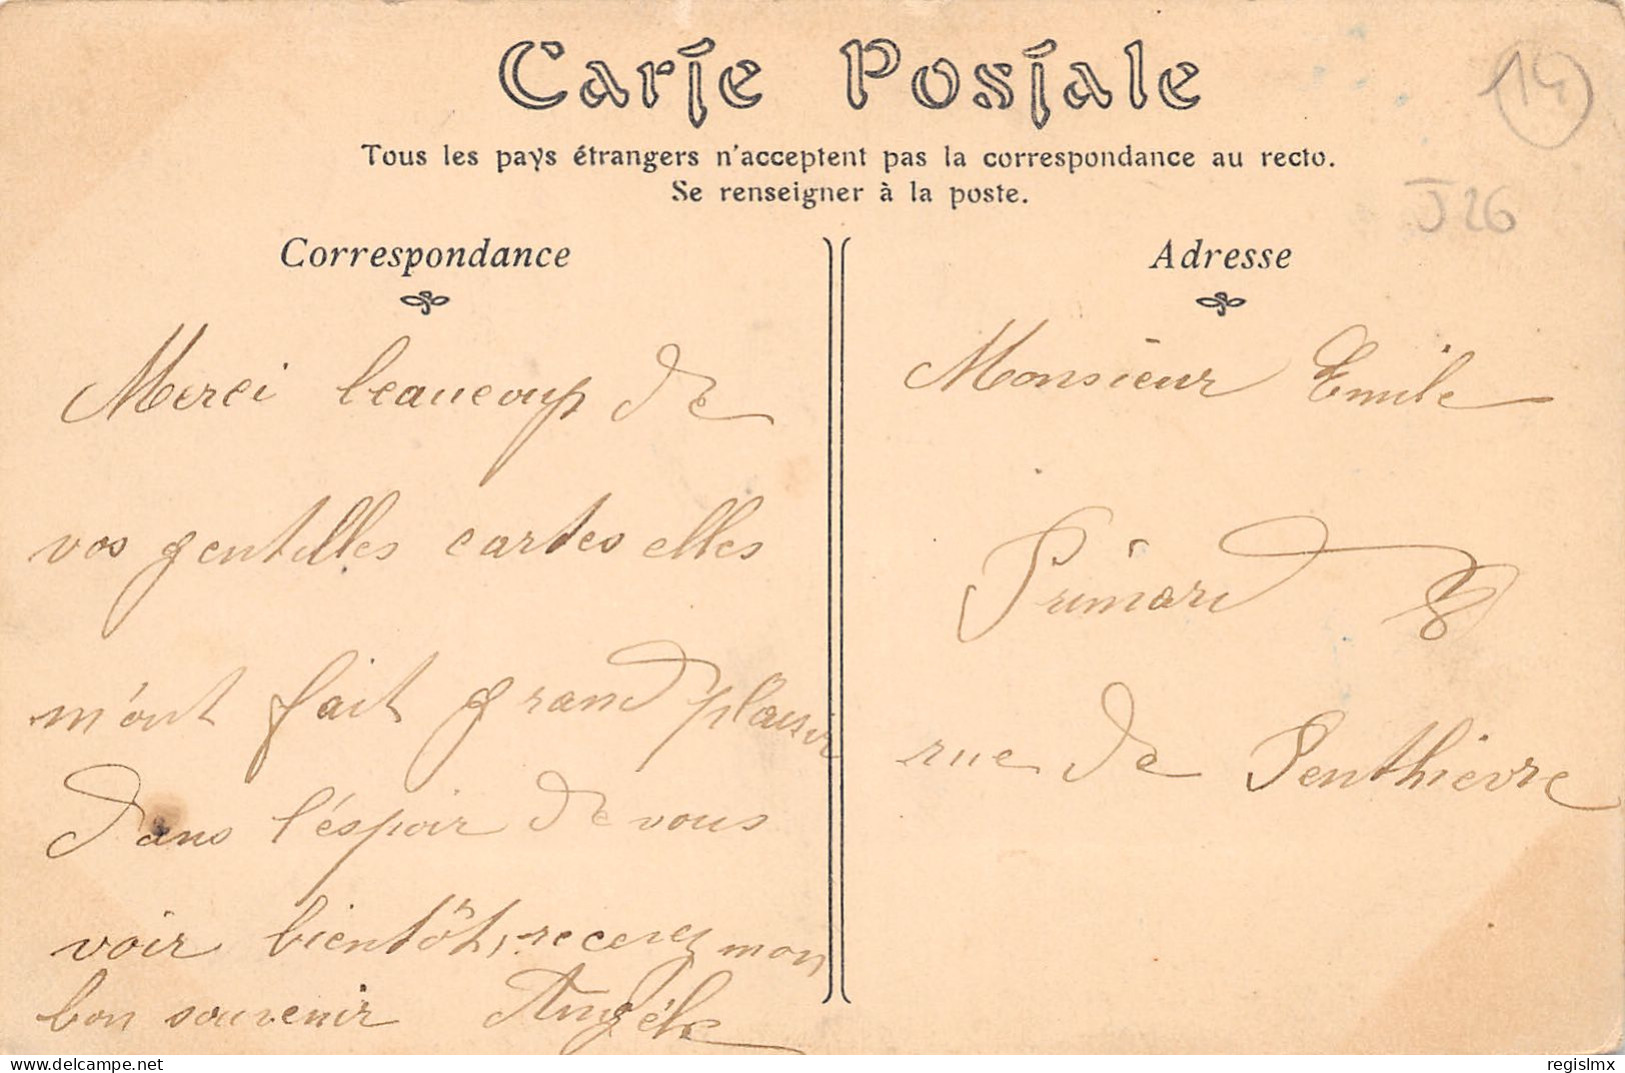 Carte Postale
14
Tous les pays étrangers n'acceptent pas la correspondance au recto.
Se renseigner à la poste.
J 26
Correspondance
Merci beaucoup de
vos gentilles cartes elles
m'ont fait grand plaisir
dans l'éspoir de vous
voir bientôt, recevez mon
bon souvenir Angèle
Adresse
Monsieur Emile
Primard
rue de Penthièvre
delcampe.net
regislmx